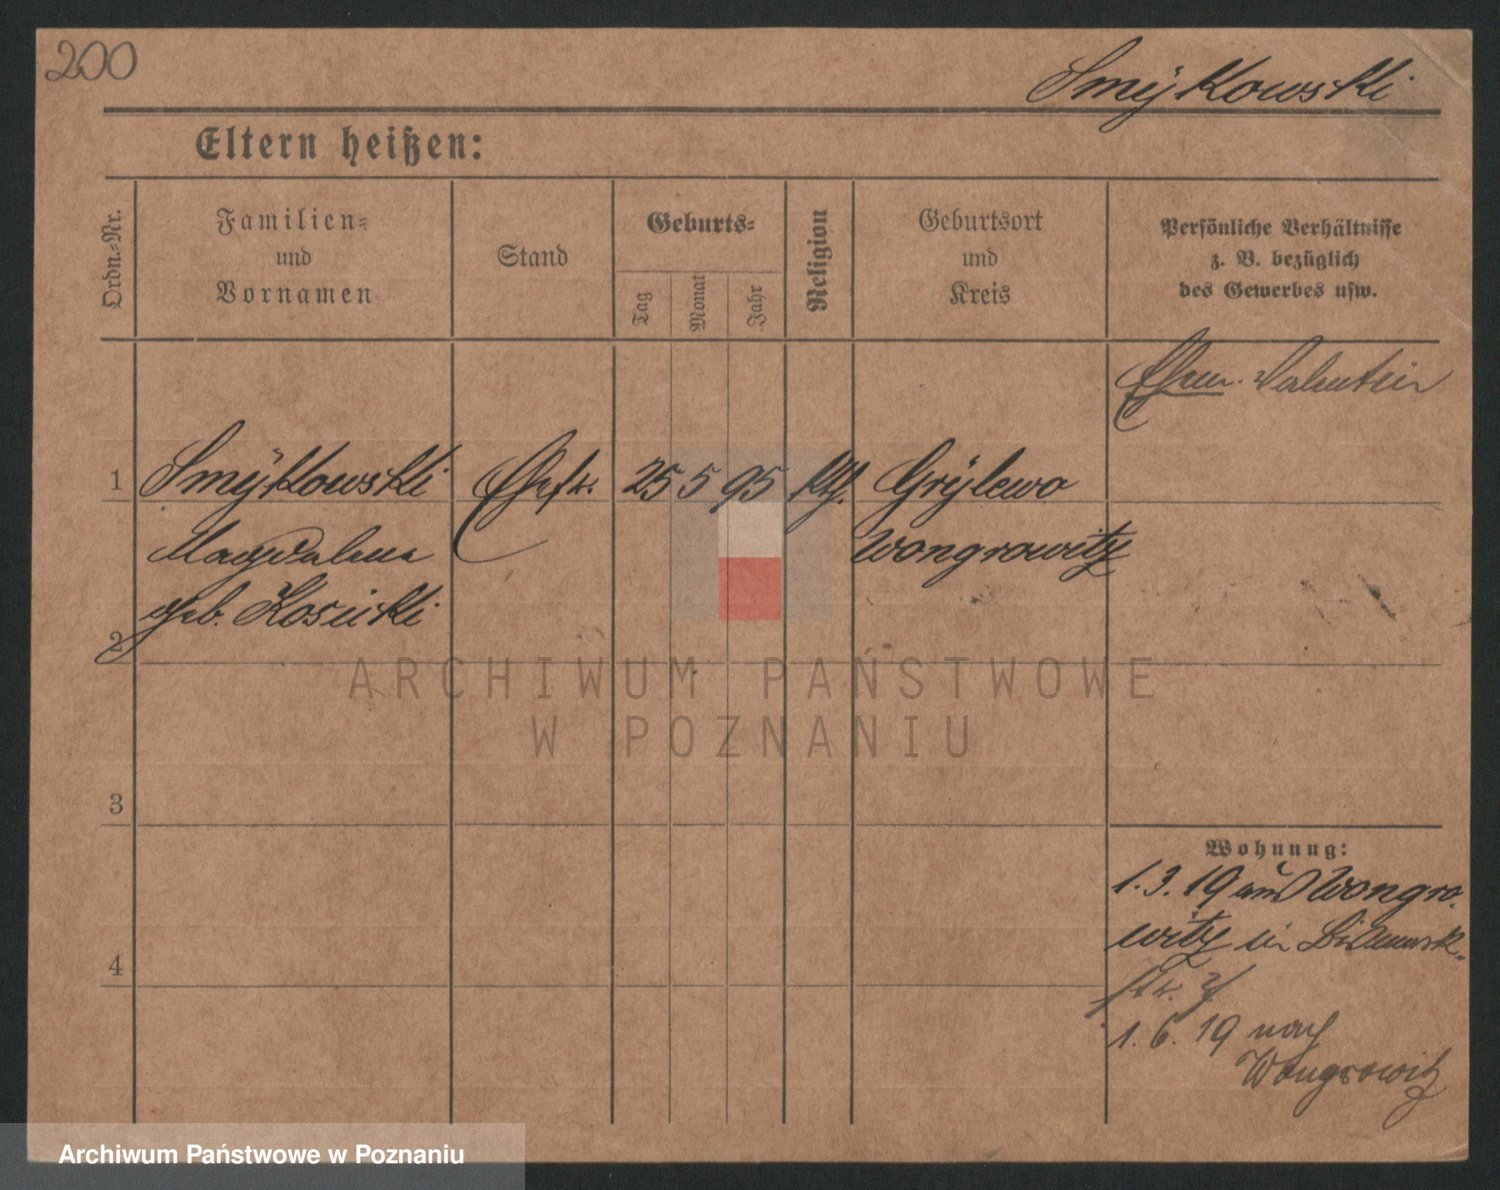 200
Smÿkowski
Eltern heißen:
Ordn.-Nr.
Familien-
und
Vornamen
Stand
Geburts-
Tag
Monat
Jahr
Religion
Geburtsort
und
Kreis
Persönliche Verhältnisse
z. B. bezüglich
des Gewerbes usw.
Ehem. Valentin
1 Smÿkowski Ehefr. 25 5 95 kth. Grÿlewo
Magdalena Wongrowitz
geb. Kosicki
2
3
4
Wohnung:
1. 3. 19 aus Wongro-
witz in Bismark-
str. 7
1. 6. 19 nach
Wongrowitz
ARCHIWUM PAŃSTWOWE
W POZNANIU
Archiwum Państwowe w Poznaniu